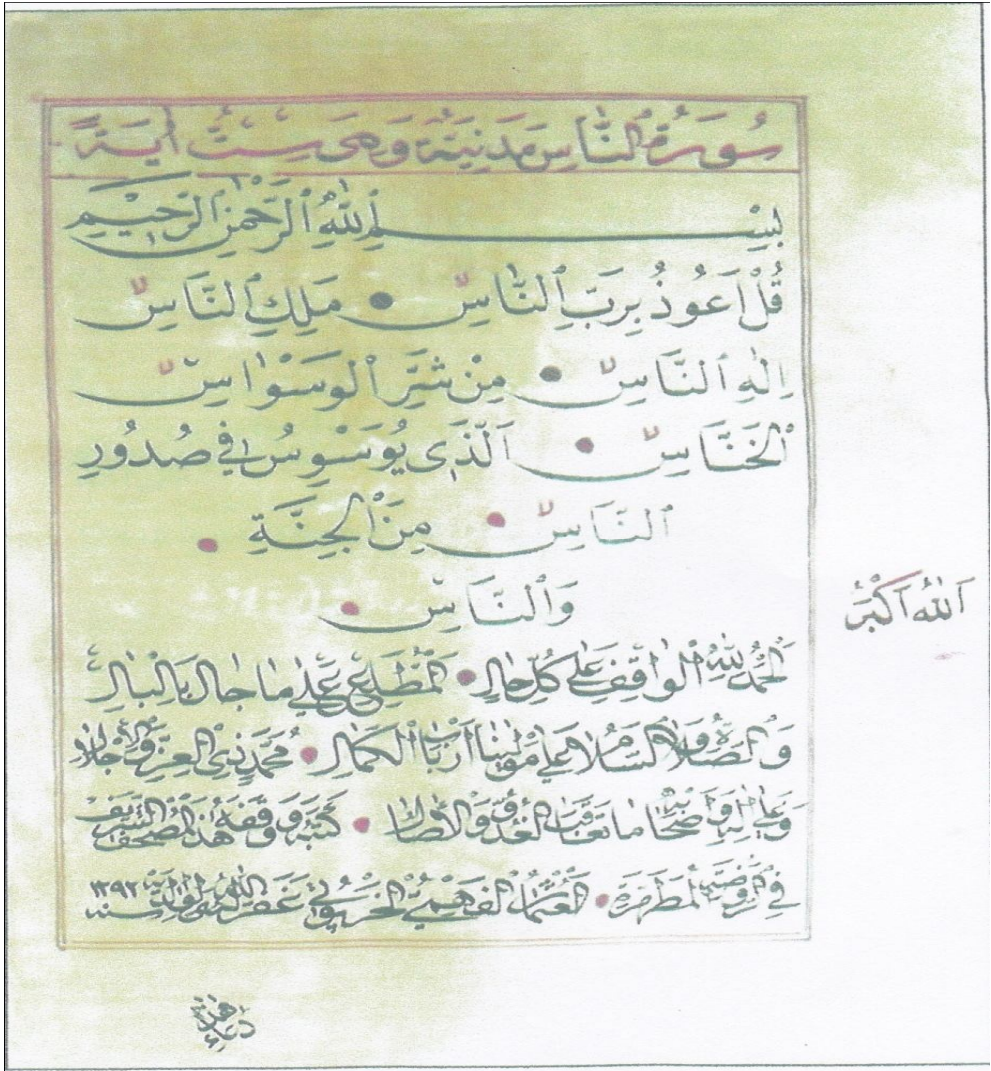 سُورَةُ النَّاسِ مَدَنِيَّةٌ وَهِيَ سِتُّ اٰيَةً
بِسْمِ اللّٰهِ الرَّحْمٰنِ الرَّحِيمِ
قُلْ اَعُوذُ بِرَبِّ النَّاسِ ● مَلِكِ النَّاسِ
اِلٰهِ النَّاسِ ● مِنْ شَرِّ الْوَسْوَاسِ
الْخَنَّاسِ ● اَلَّذِى يُوَسْوِسُ فِى صُدُورِ
النَّاسِ ● مِنَ الْجِنَّةِ ●
وَالنَّاسِ ●
اَللّٰهُ اَكْبَرُ
الحمد لله الواقف على كل حال ● المطلع على ما جال بالبال
والصلاة والسلام على مولينا ارباب الكمال ● محمد ذى العز والاجلال
وعلى اله واصحابه ما تعاقبت الغدو والاصال ● كتبه ووقفه هذا المصحف الشريف
فى الروضة المطهرة ● غفر الله ولوالديه سنة ١٢٩٢